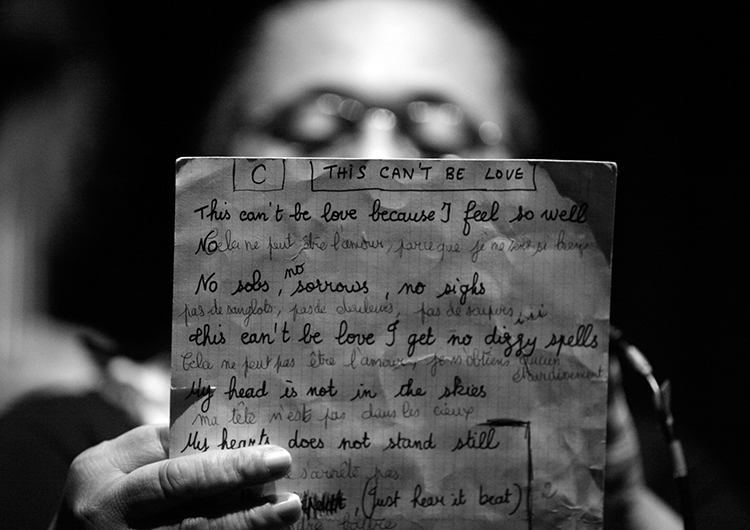 C THIS CAN'T BE LOVE
This can't be love because I feel so well
Cela ne peut être l'amour, parce que je me sens si bien
No sobs, no sorrows, no sighs
pas de sanglots, pas de douleurs, pas de soupirs
This can't be love I get no dizzy spells
Cela ne peut pas être l'amour, je obtiens aucun
étourdissement
My head is not in the skies
ma tête n'est pas dans les cieux
My hearts does not stand still
s'arrêté pas
(Just hear it beat)
battre